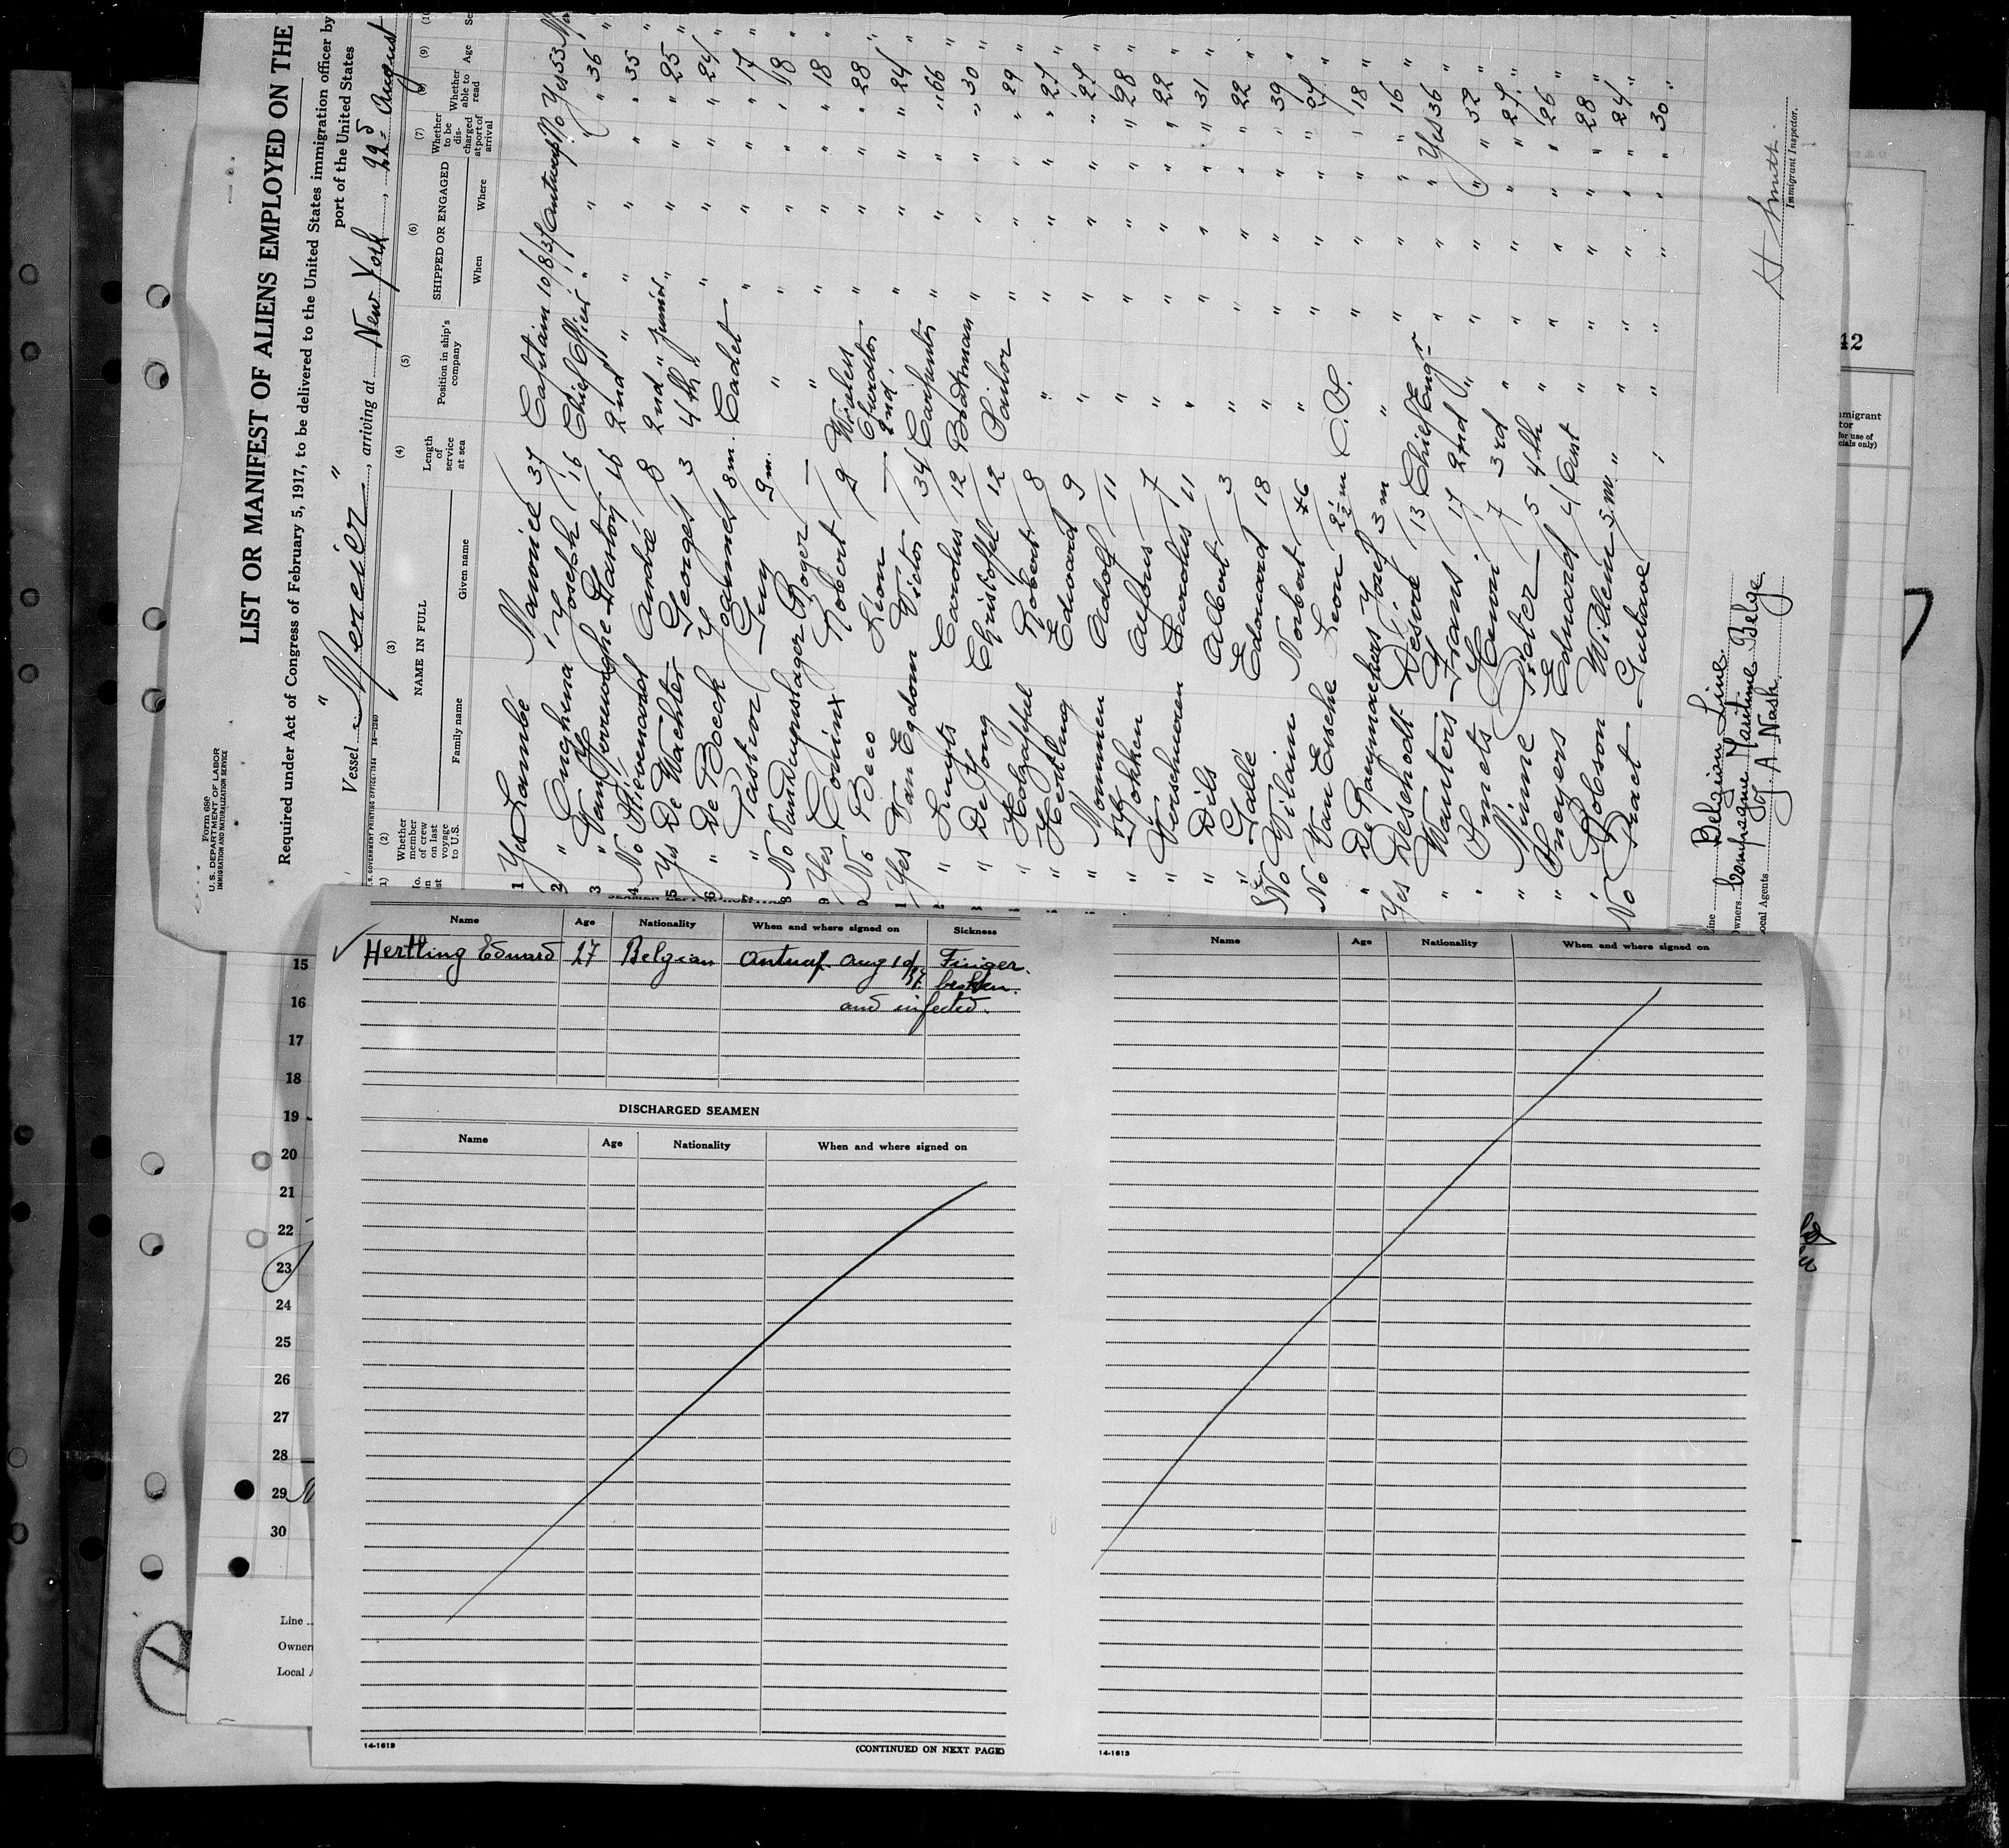 Form 680
U. S. DEPARTMENT OF LABOR
IMMIGRATION AND NATURALIZATION SERVICE
LIST OR MANIFEST OF ALIENS EMPLOYED ON THE
Required under Act of Congress of February 5, 1917, to be delivered to the United States immigration officer by
port of the United States
Vessel " Mercier ", arriving at New York, 22 August
S. GOVERNMENT PRINTING OFFICE: 14-1240
(2) (3) (4) (5) (6) (7) (9)
Whether member of crew on last voyage to U.S. NAME IN FULL Family name Given name Length of service at sea Position in ship's company SHIPPED OR ENGAGED When Where Whether to be discharged at port of arrival Whether able to read Age
1 Yes Lambé Maurice 37 Captain 10/8/37 Antwerp No Yes 53
2 " Enghina Joseph 16 Chief Officer " " " " 36 "
3 " Gaston 16 2nd " " " " " 35 "
4 No André 8 2nd " Junior " " " " 25 "
5 Yes De Wachter Georges 3 4th " " " " " 24 "
6 " De Boeck Joannes 8 m. Cadet " " " " 17 "
7 " Pastior Guy 9 m. " " " " " 18 "
8 No Roger — " " " " " 18 "
9 Yes Coninx Robert 9 Wireless Operator " " " " 28 "
No Beco Léon — 2nd " " " " " 24 "
Yes Van Egdom Victor 34 Carpenter " " " " 66 "
" Luyts Carolus 12 Boatsman " " " " 30 "
" De Jong Christoffel 12 Sailor " " " " 29 "
" Holzapffel Robert 8 " " " " " 27 "
" Hertling Edward 9 " " " " " 27 "
" Mommen Adolf 11 " " " " " 28 "
" Fokken Alfons 7 " " " " " 22 "
" Verschueren Carolus 11 " " " " " 31 "
" Dils Albert 3 " " " " " 22 "
" Gallé Edmond 18 " " " " " 39 "
No Wilain Norbert " " " " "
No Van Eesche Leon 2½ m O.S. " " " " 18 "
" De Raeymaekers Josef 3 m " " " " " 16 "
Yes Desehodt Désiré 13 Chief Engr " " " Yes 36 "
" Wauters Frans 17 2nd " " " " " 32 "
" Smets Henri 7 3rd " " " " " 27 "
" Minne Pieter 5 4th " " " " " 26 "
" Sneyers Edward 4 Asst " " " " 28 "
" Robson Willem 5 m. " " " " " 24 "
No Praet Gustave " " " " " 30 "
Line Belgian Line.
Owners Compagnie Maritime Belge.
Local Agents G. A. Nash.
H Smith
Immigrant Inspector.
Name Age Nationality When and where signed on Sickness
Hertling Edward 27 Belgian Antwp. Aug 10/37. Finger.
broken.
and infected.
DISCHARGED SEAMEN
Name Age Nationality When and where signed on
14-1613
(CONTINUED ON NEXT PAGE)
Name Age Nationality When and where signed on
14-1613
15
16
17
18
19
20
21
22
23
24
25
26
27
28
29
30
Line
Owners
Local A
42